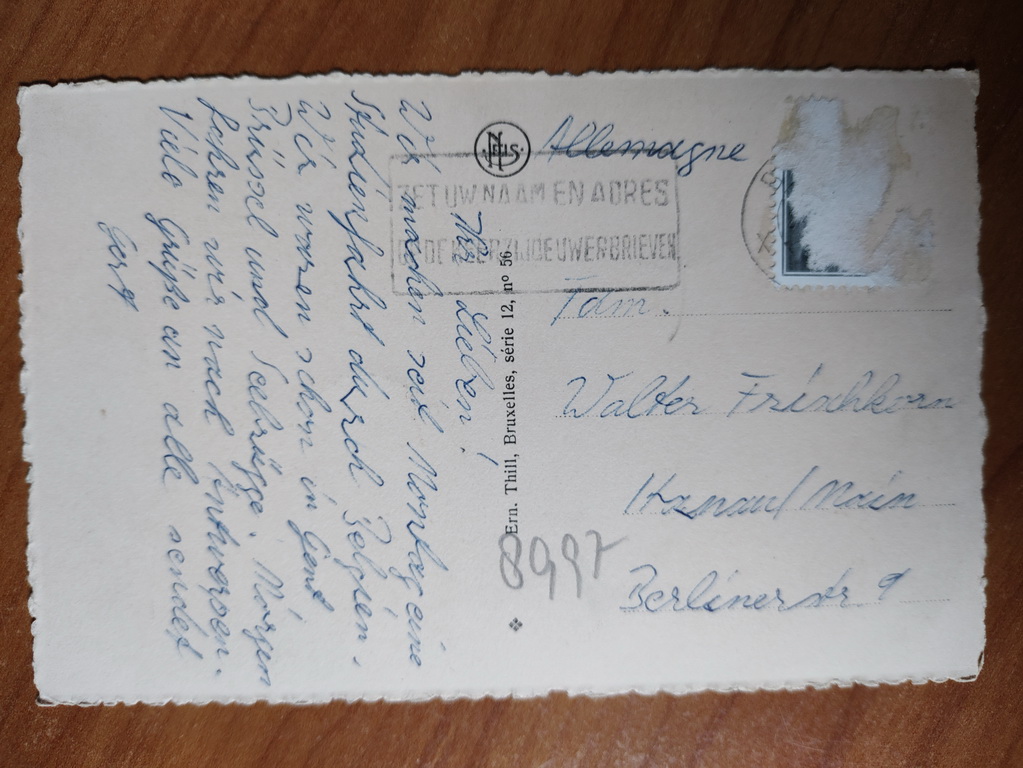 Ihr Lieben!
Wir machen seit Montag eine
Studienfahrt durch Belgien.
Wir waren schon in Gent
Brüssel und Seebrügge. Morgen
fahren wir nach Antwerpen.
Viele Grüße an alle sendet
NELS
Ern. Thill, Bruxelles, série 12, nº 56
8997
Allemagne
ZET UW NAAM EN ADRES
Fam.
Walter Frischkorn
Hanau/Main
Berlinerstr 9